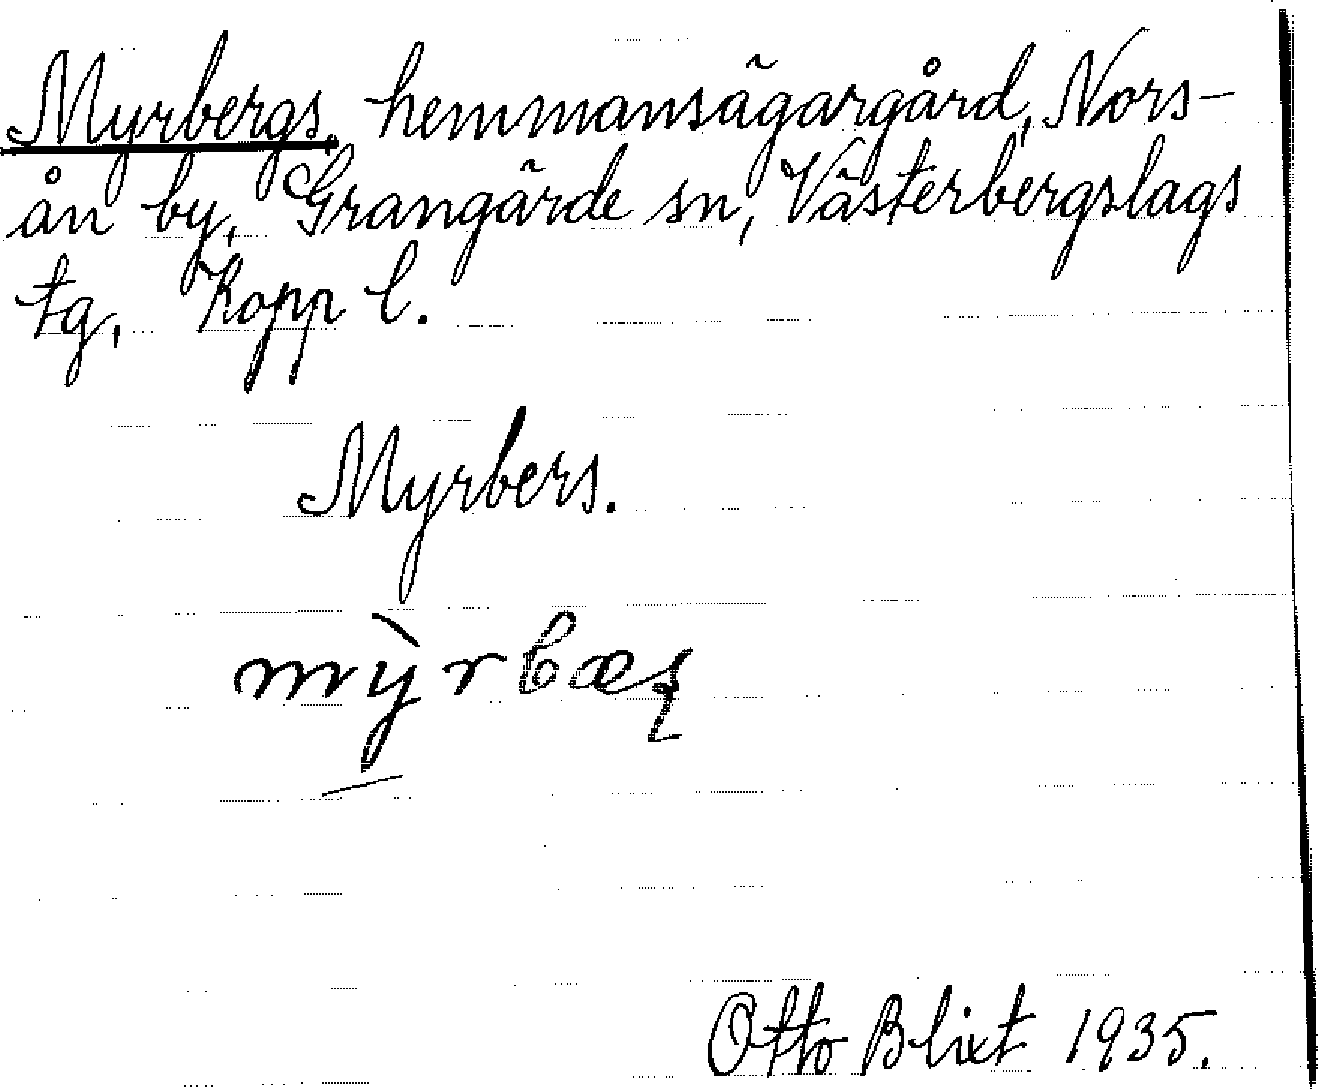 Myrbergs, hemmansägargård, Nors-
ån by, Grangärde sn, Västerbergslags
tg, Kopp l.
Myrbers.
mỳrbæʂ
Otto Blixt 1935.